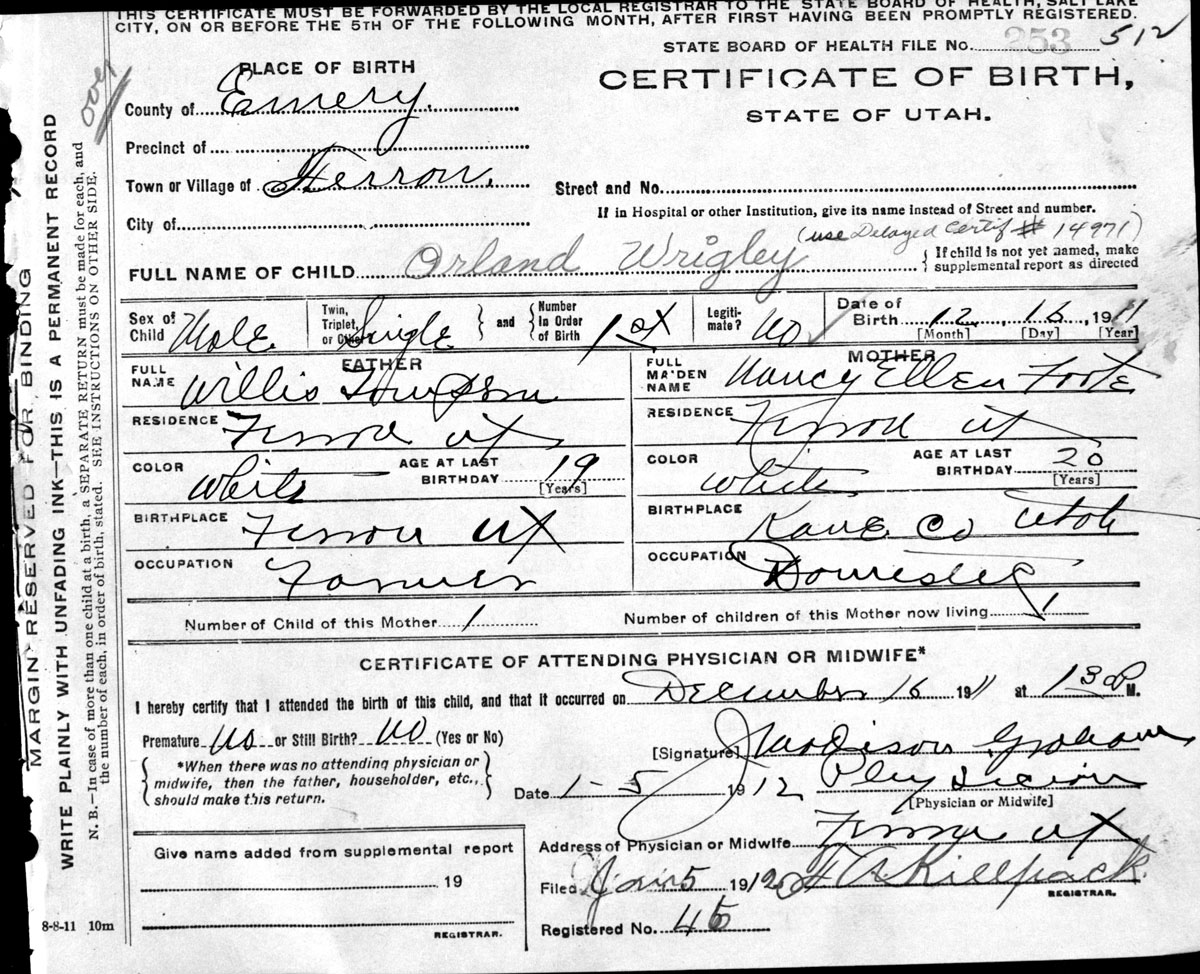 THIS CERTIFICATE MUST BE FORWARDED BY THE LOCAL REGISTRAR TO THE STATE BOARD OF HEALTH, SALT LAKE
CITY, ON OR BEFORE THE 5TH OF THE FOLLOWING MONTH, AFTER FIRST HAVING BEEN PROMPTLY REGISTERED.
STATE BOARD OF HEALTH FILE No. 253 512
PLACE OF BIRTH
CERTIFICATE OF BIRTH,
STATE OF UTAH.
County of Emery.
Precinct of
Town or Village of Ferron.
Street and No.
City of
If in Hospital or other Institution, give its name instead of Street and number.
(use Delayed Certif # 14971)
FULL NAME OF CHILD Orland Wrigley
{ If child is not yet named, make supplemental report as directed
Sex of Child Male
Twin, Triplet, or Other Single } and { Number in Order of Birth 1st
Legitimate? No
Date of Birth 12, 16, 1911
[Month] [Day] [Year]
FATHER
FULL NAME Willis
RESIDENCE Ferron Ut
COLOR White AGE AT LAST BIRTHDAY 19
[Years]
BIRTHPLACE Ferron Ut
OCCUPATION Farmer
MOTHER
FULL MAIDEN NAME Nancy Ellen Foote
RESIDENCE Ferron Ut
COLOR White AGE AT LAST BIRTHDAY 20
[Years]
BIRTHPLACE Kane Co Utah
OCCUPATION Domestic
Number of Child of this Mother 1
Number of children of this Mother now living 1
CERTIFICATE OF ATTENDING PHYSICIAN OR MIDWIFE*
I hereby certify that I attended the birth of this child, and that it occurred on December 16 1911 at 1 30 P M.
Premature No or Still Birth? No (Yes or No)
{ *When there was no attending physician or midwife, then the father, householder, etc., should make this return. }
[Signature] J Madison Graham
Date 1-5 1912 Physician
[Physician or Midwife]
Address of Physician or Midwife Ferron Ut
Filed Jan 5 1912 Killpack
REGISTRAR.
Registered No. 45
Give name added from supplemental report
19
REGISTRAR.
8-8-11 10m
MARGIN RESERVED FOR BINDING
WRITE PLAINLY WITH UNFADING INK—THIS IS A PERMANENT RECORD
N. B.—In case of more than one child at a birth, a SEPARATE RETURN must be made for each, and
the number of each, in order of birth, stated. SEE INSTRUCTIONS ON OTHER SIDE.